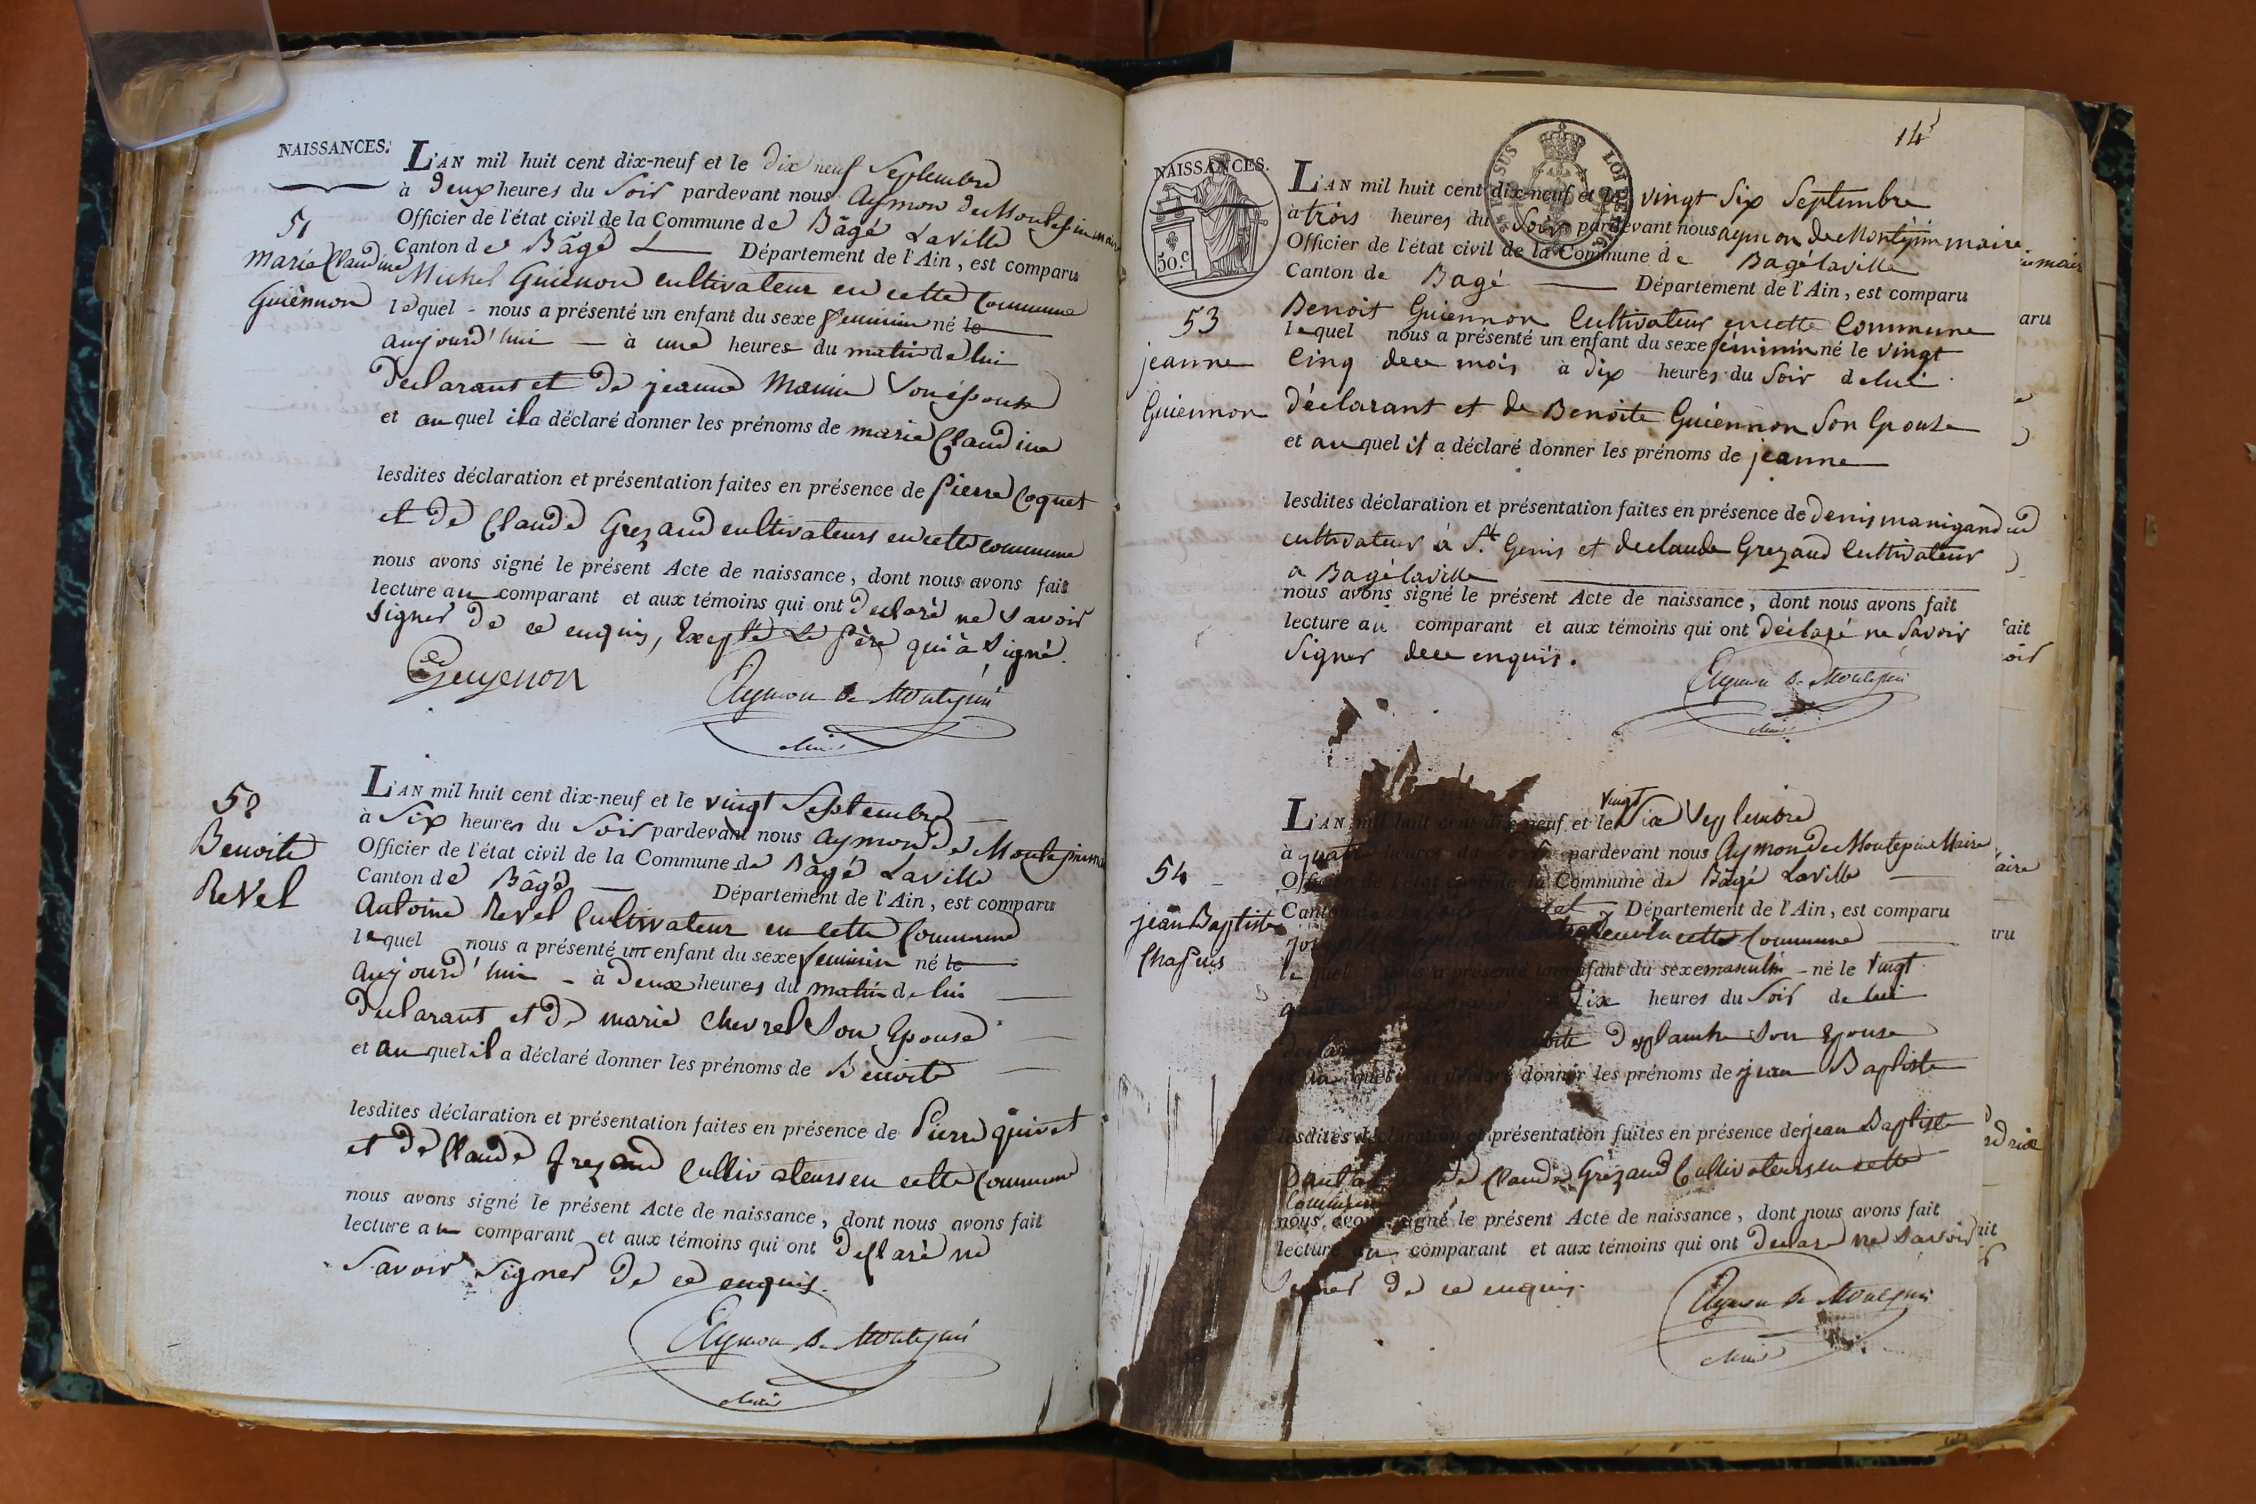 NAISSANCES.
L'AN mil huit cent dix-neuf et le dix neuf Septembre
à deux heures du Soir pardevant nous Aymon de Montepin maire
Officier de l'état civil de la Commune de Bâgé Laville
Canton de Bâgé Département de l'Ain, est comparu
51
Marie Claudine
Guiennon
Michel Guienon cultivateur en cette Commune
lequel - nous a présenté un enfant du sexe feminin né le
aujourd'hui - à une heures du matin de lui
declarant et de jeanne Son épouse
et auquel il a déclaré donner les prénoms de marie Claudine
lesdites déclaration et présentation faites en présence de Pierre Coquet
et de Claude Grezaud cultivateurs en cette commune
nous avons signé le présent Acte de naissance, dont nous avons fait
lecture au comparant et aux témoins qui ont declaré ne Savoir
signer de ce enquis, Excepté Le Père qui à Signé.
Guyenon
Aymon de Montepin
52
Benoite
Revel
L'AN mil huit cent dix-neuf et le vingt Septembre
à Six heures du Soir pardevant nous Aymon de Montepin
Officier de l'état civil de la Commune de Bâgé Laville
Canton de Bâgé Département de l'Ain, est comparu
Antoine Revel Cultivateur en cette Commune
lequel nous a présenté un enfant du sexe feminin né le
aujourd'hui - à deux heures du matin de lui
declarant et de marie chevrel Son Epouse
et auquel il a déclaré donner les prénoms de Benoite
lesdites déclaration et présentation faites en présence de Pierre
et de Claude Grezaud Cultivateurs en cette Commune
nous avons signé le présent Acte de naissance, dont nous avons fait
lecture au comparant et aux témoins qui ont declaré ne
Savoir Signer de ce enquis.
Aymon de Montepin
14
NAISSANCES.
50.c
L'AN mil huit cent dix-neuf et le vingt Six Septembre
à trois heures du Soir pardevant nous aymon de Montepin maire
Officier de l'état civil de la Commune de Bagé laville
Canton de Bagé Département de l'Ain, est comparu
53
jeanne
Guiennon
Benoit Guiennon Cultivateur en cette Commune
lequel nous a présenté un enfant du sexe féminin né le vingt
Cinq de ce mois à dix heures du Soir de lui
déclarant et de Benoite Guiennon Son Epouse
et auquel il a déclaré donner les prénoms de jeanne
lesdites déclaration et présentation faites en présence de denis manigand
cultivateur à St. Genis et de claude Grezaud Cultivateur
a Bagé laville
nous avons signé le présent Acte de naissance, dont nous avons fait
lecture au comparant et aux témoins qui ont déclaré ne Savoir
Signer de ce enquis.
Aymon de Montepin
54
jean Baptiste
Chapuis
L'AN mil huit cent dix-neuf et le vingt Six Septembre
à quatre heures du Soir pardevant nous Aymon de Montepin Maire
Officier de l'état civil de la Commune de Bâgé Laville
Canton de Département de l'Ain, est comparu
cette Commune
lequel nous a présenté un enfant du sexe masculin - né le Vingt
dix heures du Soir de lui
Son Epouse
et auquel il a déclaré donner les prénoms de jean Baptiste
lesdites déclaration et présentation faites en présence de jean Baptiste
de Claude Grézaud Cultivateurs en cette
Commune
nous avons signé le présent Acte de naissance, dont nous avons fait
lecture au comparant et aux témoins qui ont declaré ne Savoir
Signer de ce enquis.
Aymon de Montepin